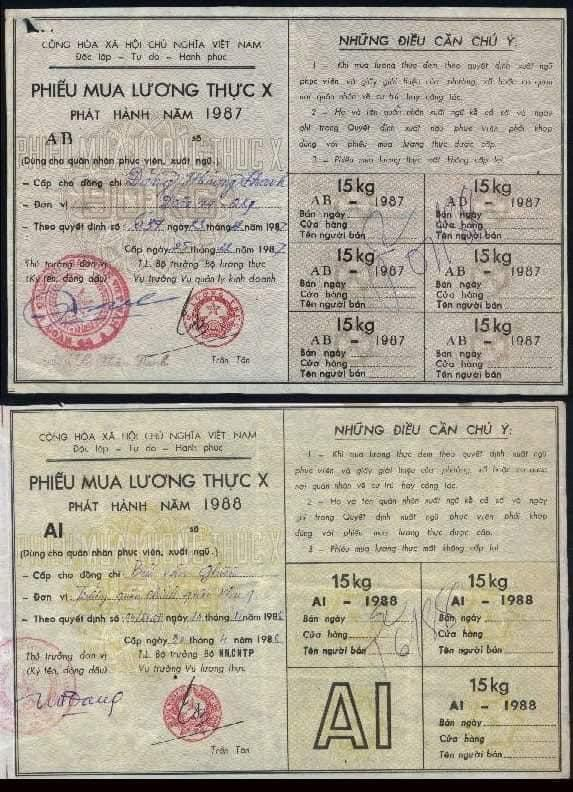 CỘNG HÒA XÃ HỘI CHỦ NGHĨA VIỆT NAM
Độc lập - Tự do - Hạnh phúc
PHIẾU MUA LƯƠNG THỰC X
PHÁT HÀNH NĂM 1987
AB số
(Dùng cho quân nhân phục viên, xuất ngũ.)
- Cấp cho đồng chí
- Đơn vị
- Theo quyết định số ngày tháng năm 1987
Cấp ngày 25 tháng năm 1987
Thủ trưởng đơn vị T.L Bộ trưởng bộ lương thực
(Ký tên, đóng dấu) Vụ trưởng Vụ quản lý kinh doanh
Trần Tấn
NHỮNG ĐIỀU CẦN CHÚ Ý:
1 - Khi mua lương thực đem theo quyết định xuất ngũ
phục viên và giấy giới thiệu của phường, xã hoặc cơ quan
nơi quân nhân về cư trú hay công tác.
2 - Họ và tên quân nhân xuất ngũ kể cả số và ngày
ghi trong Quyết định xuất ngũ phục viên phải khớp
đúng với phiếu mua lương thực được cấp.
3 - Phiếu mua lương thực mất không cấp lại
15kg 15kg
AB - 1987 AB - 1987
Bán ngày Bán ngày
Cửa hàng Cửa hàng
Tên người bán Tên người bán
15kg 15kg
AB - 1987 AB - 1987
Bán ngày Bán ngày
Cửa hàng Cửa hàng
Tên người bán Tên người bán
15kg 15kg
AB - 1987 AB - 1987
Bán ngày Bán ngày
Cửa hàng Cửa hàng
Tên người bán Tên người bán
CỘNG HÒA XÃ HỘI CHỦ NGHĨA VIỆT NAM
Độc lập - Tự do - Hạnh phúc
PHIẾU MUA LƯƠNG THỰC X
PHÁT HÀNH NĂM 1988
AI số
(Dùng cho quân nhân phục viên, xuất ngũ.)
- Cấp cho đồng chí
- Đơn vị
- Theo quyết định số ngày tháng năm 198
Cấp ngày 20 tháng 4 năm 198
Thủ trưởng đơn vị T.L Bộ trưởng Bộ NN.CNTP
(Ký tên, đóng dấu) Vụ trưởng Vụ lương thực
Trần Tấn
NHỮNG ĐIỀU CẦN CHÚ Ý:
1 - Khi mua lương thực đem theo quyết định xuất ngũ
phục viên và giấy giới thiệu của phường, xã hoặc cơ quan
nơi quân nhân về cư trú hay công tác.
2 - Họ và tên quân nhân xuất ngũ kể cả số và ngày
ghi trong Quyết định xuất ngũ phục viên phải khớp
đúng với phiếu mua lương thực được cấp.
3 - Phiếu mua lương thực mất không cấp lại
15kg 15kg
AI - 1988 AI - 1988
Bán ngày Bán ngày
Cửa hàng Cửa hàng
Tên người bán Tên người bán
AI
15kg
AI - 1988
Bán ngày
Cửa hàng
Tên người bán